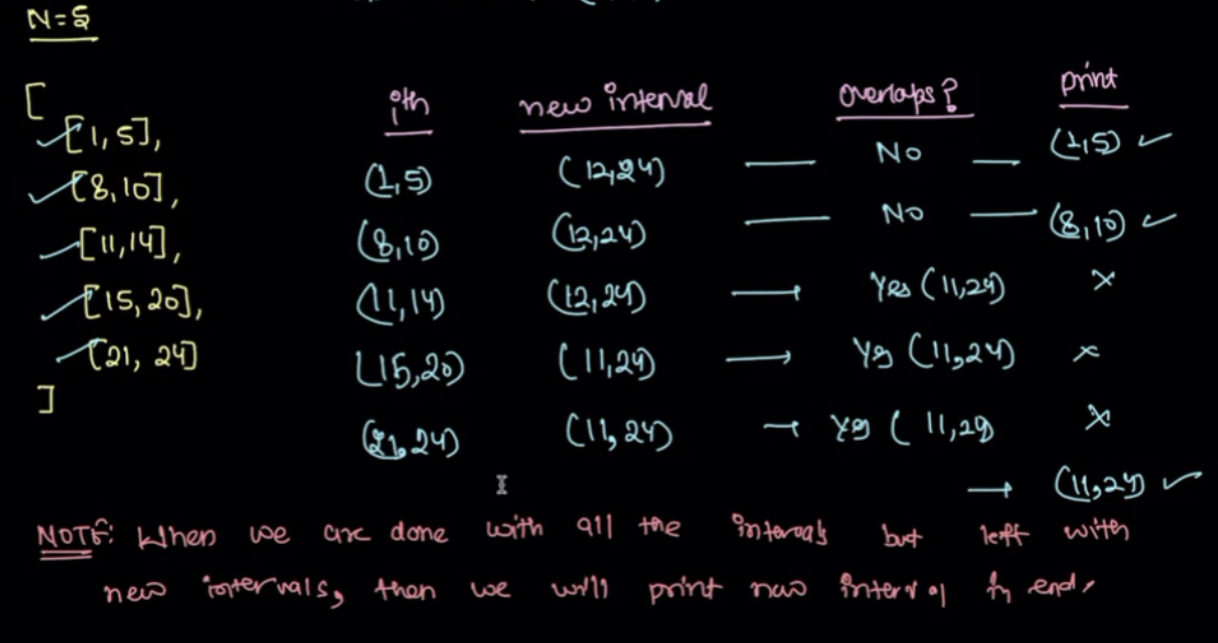 N=5
[
[1,5],
[8,10],
[11,14],
[15,20],
[21, 24]
]
ith new interval overlaps? print
(1,5) (12,24) No (1,5)
(8,10) (12,24) No (8,10)
(11,14) (12,24) Yes (11,24) x
(15,20) (11,24) Yes (11,24) x
(21,24) (11,24) Yes (11,24) x
(11,24)
NOTE: When we are done with all the intervals but left with
new intervals, then we will print new interval in end.